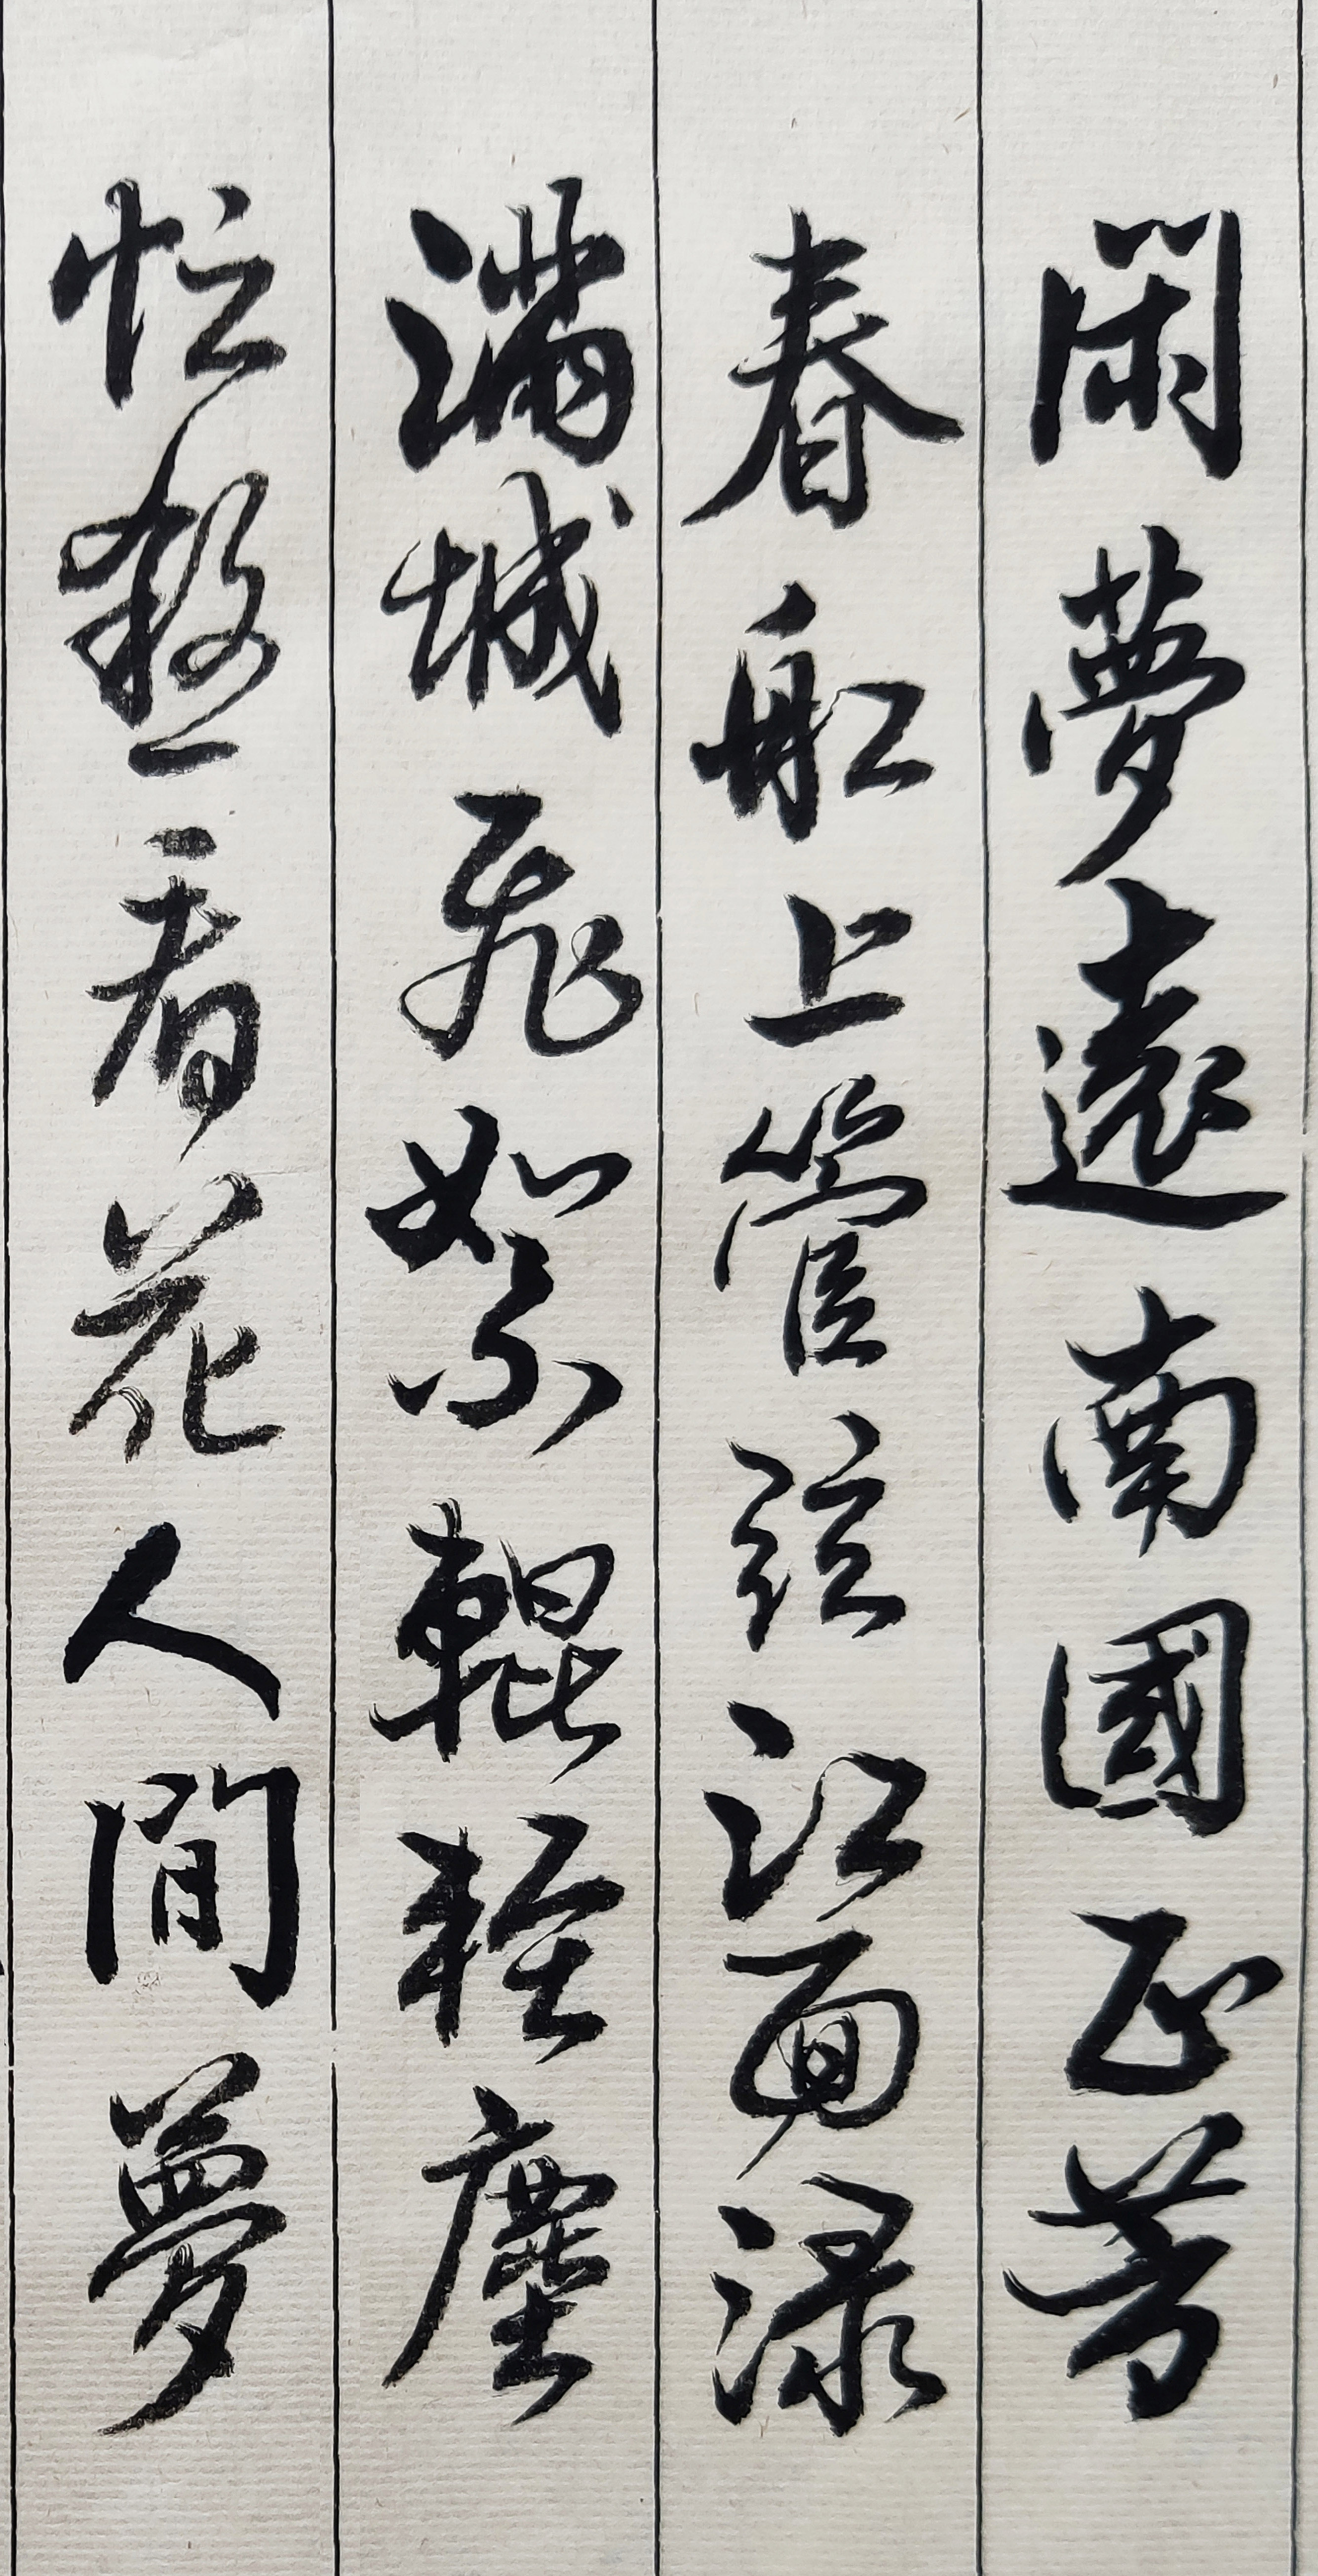 閑夢遠南國正芳
春船上管弦江面渌
滿城飛絮輥輕塵
忙殺看花人間夢